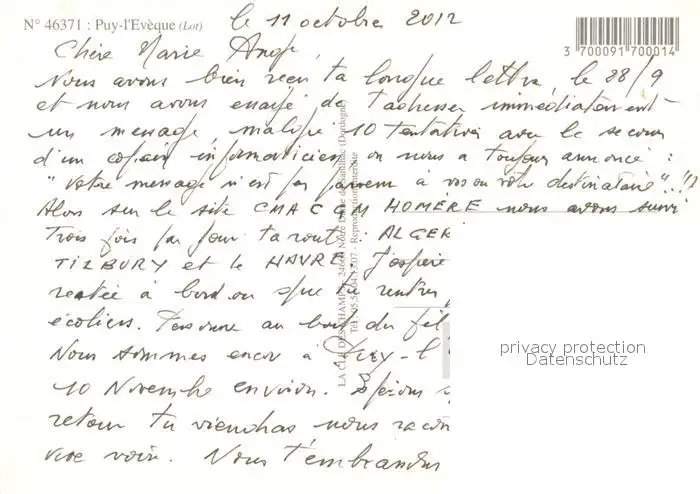 N° 46371 : Puy-l'Evèque (Lot)
le 11 octobre 2012
3 700091 700014
Chère Marie Ange,
Nous avons bien reçu ta longue lettre, le 28/9
et nous avons essayé de t'adresser immédiatement
un message, malgré 10 tentatives avec le secours
d'un copain informaticien on nous a toujours annoncé :
"Votre message n'est pas parvenu à vos ou votre destinataire"..!!
Alors sur le site CMA CGM HOMERE nous avons suivi
Trois fois par jour ta route : ALGER
TILBURY et le HAVRE. J'espère
restée à bord ou que tu rentres
écoliers. Personne au bout du fil
Nous sommes encor à Puy-l'
10 Novembre environ. Espérons
retour tu viendras nous
voir. Nous t'embrassons
LA CLE DES CHAMPS - 24660 Notre Dame de Sanilhac (Dordogne)
Reproduction interdite
privacy protection
Datenschutz